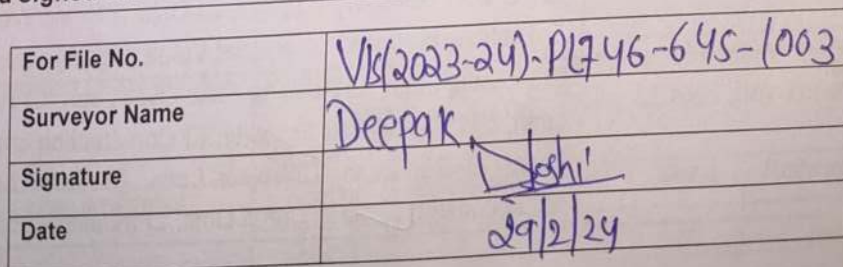 For File No. VIS(2023-24)-PL746-645-1003
Surveyor Name Deepak
Signature Joshi
Date 29/2/24